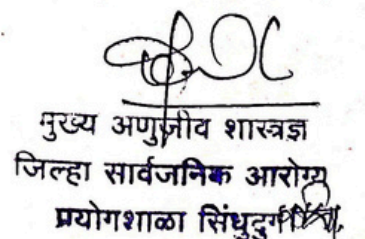 मुख्य अणुजीव शास्त्रज्ञ
जिल्हा सार्वजनिक आरोग्य
प्रयोगशाळा सिंधुदुर्ग